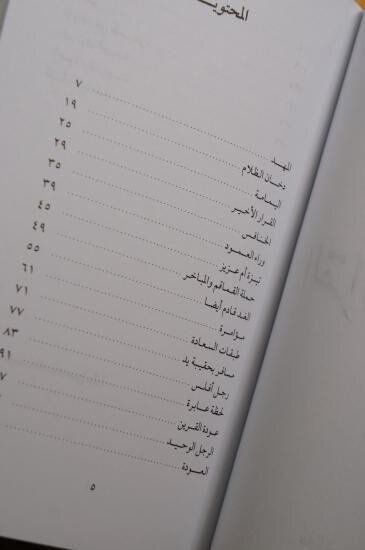 المحتويـ
المهد ٧
دخان الظلام ١٩
اليمامة ٢٥
القرار الأخير ٢٩
الخنافس ٣٥
وراء العمود ٣٩
نبزة أم عزيز ٤٥
حملة القماقم والمباخر ٤٩
الغد قادم أيضا ٥٥
مؤامرة ٦١
طبقات السعادة ٧١
مسافر بحقيبة يد ٧٧
رجل أفلس ٨٣
لحظة عابرة ٩١
عودة القرين ٧
الرجل الوحيد
العودة
٥